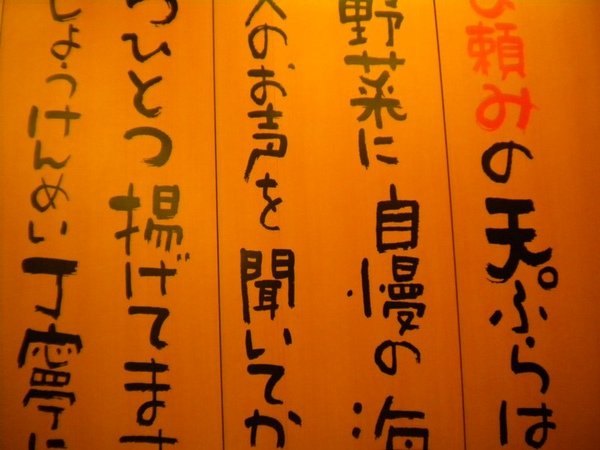 頼みの天ぷらは
野菜に自慢の海
のお声を聞いてか
つひとつ揚げてます
しょうけんめい丁寧に